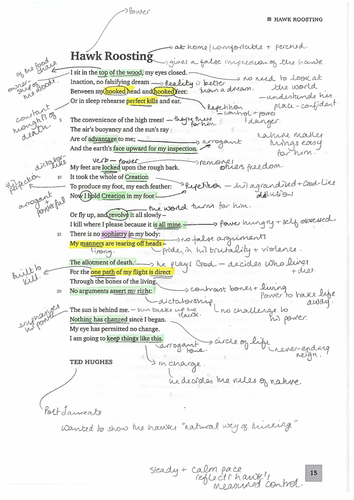 Power
HAWK ROOSTING
at home, comfortable + perched
Hawk Roosting
gives a false impression of the hawk
I sit in the top of the wood, my eyes closed.
Inaction, no falsifying dream
Between my hooked head and hooked feet:
Or in sleep rehearse perfect kills and eat.
of the food chain
ownership of the wood
constant thought of death
reality is better than a dream.
no need to look at the world - understands his place - confident
Repetition - control + power + danger.
The convenience of the high trees!
The air's buoyancy and the sun's ray
Are of advantage to me;
And the earth's face upward for my inspection.
they're there for him.
arrogant
nature makes things easy for him.
verb - power
removes others freedom.
My feet are locked upon the rough bark.
It took the whole of Creation
To produce my foot, my each feather:
Now I hold Creation in my foot
dictator like
repetition
arrogant + powerful
Repetition - self aggrandised + God-like delusion
the world turns for him.
Or fly up, and revolve it all slowly –
I kill where I please because it is all mine.
There is no sophistry in my body:
My manners are tearing off heads –
power hungry + self obsessed
no false argument
irony
pride in his brutality + violence.
The allotment of death.
For the one path of my flight is direct
Through the bones of the living.
No arguments assert my right:
built to kill
he plays God - decides who lives + dies
contrast bones + living
power to take life away.
dictatorship
no challenge to his power.
The sun is behind me.
Nothing has changed since I began.
My eye has permitted no change.
I am going to keep things like this.
emphasises his power
sun backs up the hawk.
circle of life
never-ending reign.
arrogant tone.
in charge
he decides the rules of nature.
TED HUGHES
Poet Laureate
Wanted to show the hawks "natural way of thinking"
15
steady + calm pace
reflects hawk's
measured control